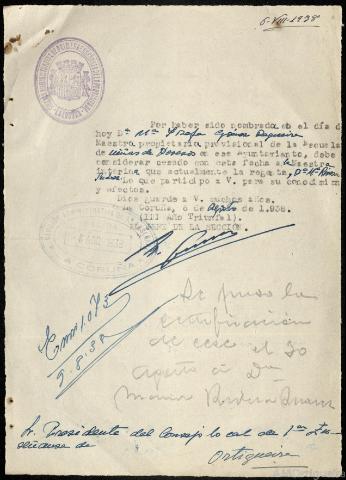 6-VIII-1938
Por haber sido nombrada en el día de
hoy Dª Mª
Maestra propietaria provisional de la Escuela
de Niñas de en ese Ayuntamiento, debe
considerar cesado con esta fecha la Maestra
interina que actualmente la regenta, Dª Mª
Lo que participo a V. para su conocimiento
y efectos.
Dios guarde a V. muchos años.
La Coruña, 6 de Agosto de 1.938.
(III Año Triunfal).
EL JEFE DE LA SECCION.
1.073
9-8-38
Se puso la
certificación
de cese el 30
agosto a Dª
María
Sr. Presidente del Consejo local de 1ª En-
señanza de
Ortigueira